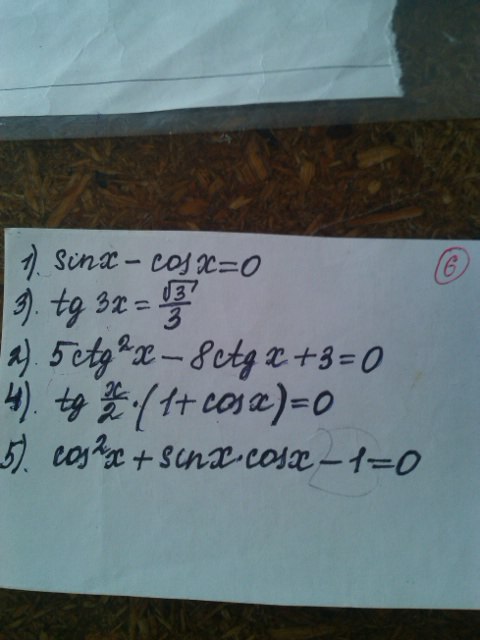 6
1). sinx - cosx = 0
3). tg 3x = √3/3
2). 5ctg²x - 8ctg x + 3 = 0
4). tg x/2 · (1 + cosx) = 0
5). cos²x + sinx · cosx - 1 = 0